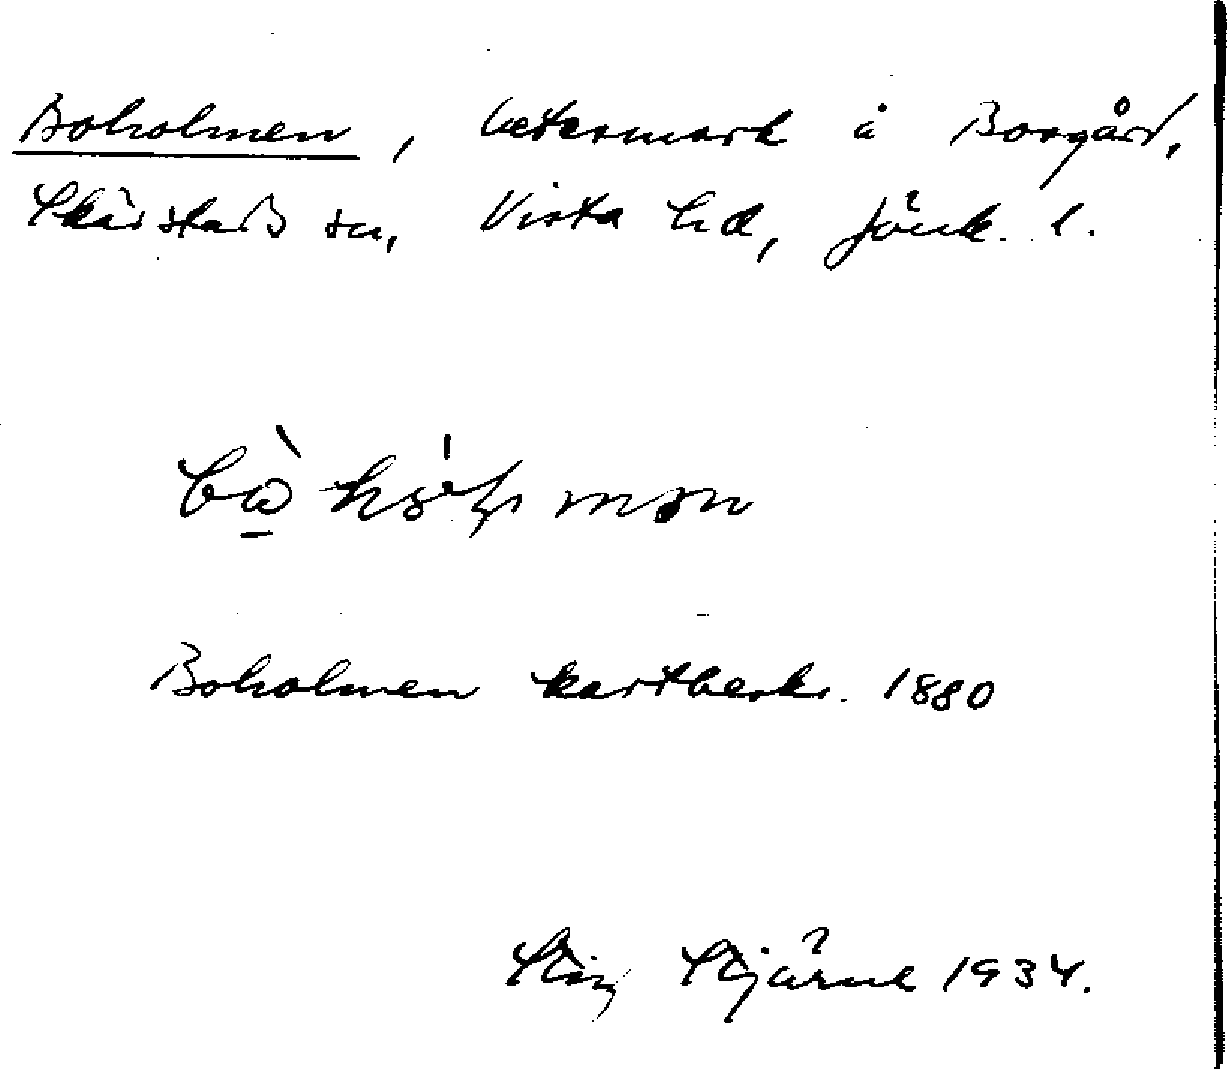 Boholmen, betesmark å Borgård,
Skärstads sn, Vista hd, Jönk. l.
Boholmen kartbeskr. 1880
Stig Stjärne 1934.